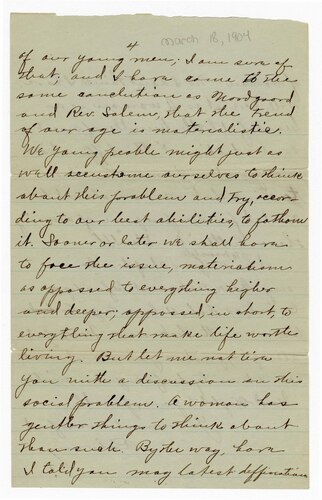 4
March 18, 1904
of our young men; I am sure of
that; and I have come to the
same conclution as Nordgaard
and Rev. Salem, that the trend
of our age is materialistic.
We young people might just as
well accustome ourselves to think
about this problem and try, accor-
ding to our best abilities, to fathom
it. Sooner or later we shall have
to face the issue, materialism
as oppased to everything higher
and deeper; oppossed, in short, to
everything that make life worth
living. But let me not tire
you with a discussion on this
social problem. A woman has
gentler things to think about
than such. By the way, have
I told you may latest deffinition